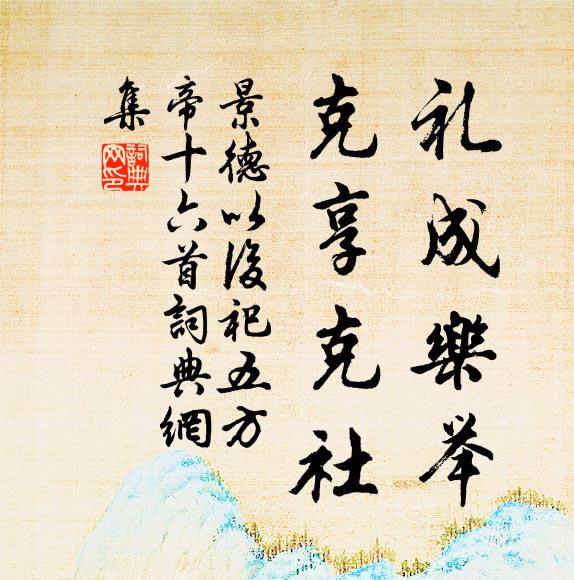 礼成樂举
克享克社
景德以後祀五方
帝十六首詞典網
集
詞典
网印